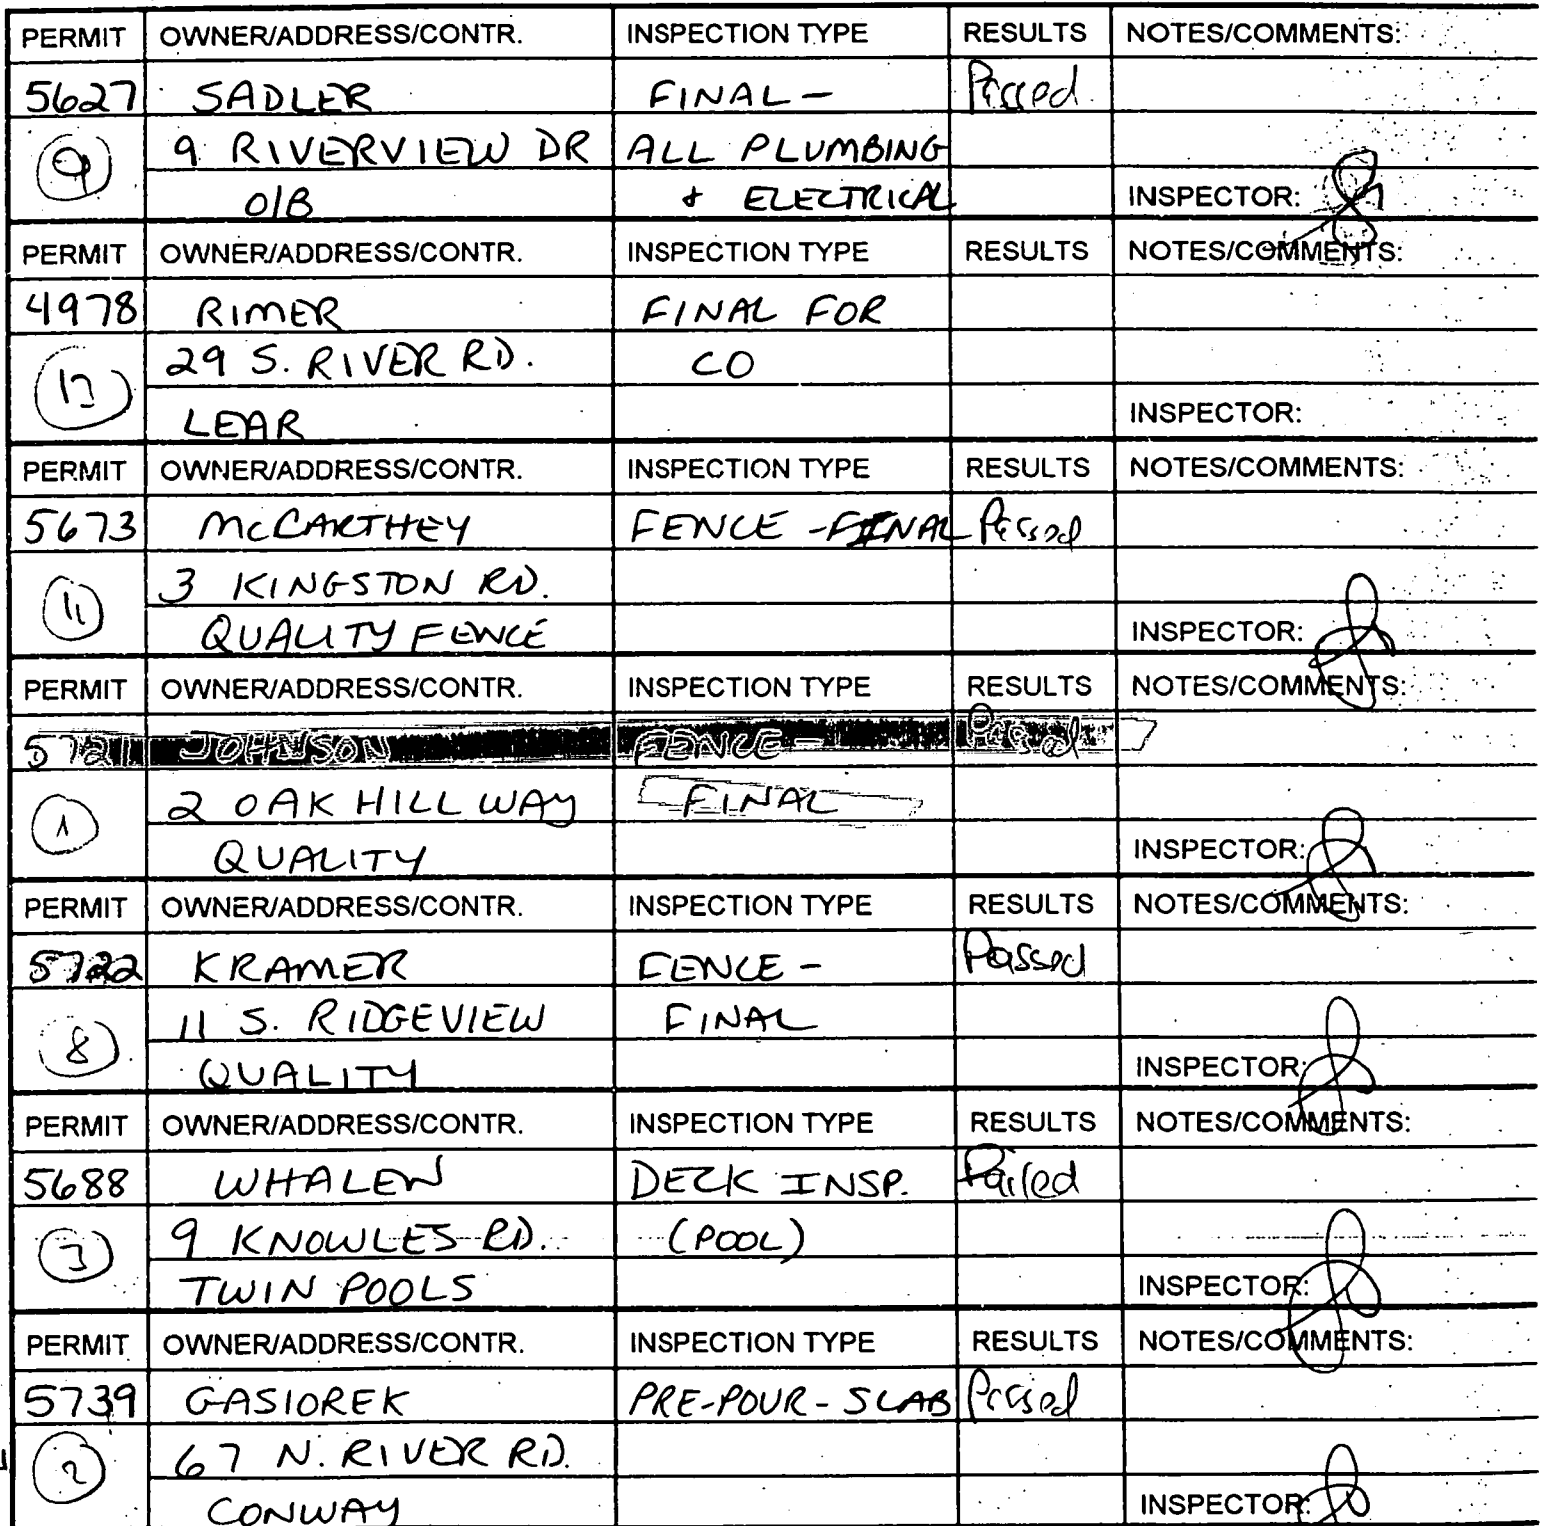 PERMIT OWNER/ADDRESS/CONTR. INSPECTION TYPE RESULTS NOTES/COMMENTS:
5627 SADLER FINAL - Passed
9 9 RIVERVIEW DR ALL PLUMBING
O/B & ELECTRICAL INSPECTOR:
PERMIT OWNER/ADDRESS/CONTR. INSPECTION TYPE RESULTS NOTES/COMMENTS:
4978 RIMER FINAL FOR
29 S. RIVER RD. CO
LEAR INSPECTOR:
PERMIT OWNER/ADDRESS/CONTR. INSPECTION TYPE RESULTS NOTES/COMMENTS:
5673 McCARTHEY FENCE - FINAL Passed
11 3 KINGSTON RD.
QUALITY FENCE INSPECTOR:
PERMIT OWNER/ADDRESS/CONTR. INSPECTION TYPE RESULTS NOTES/COMMENTS:
5721 JOHNSON FENCE - Passed
1 2 OAK HILL WAY FINAL
QUALITY INSPECTOR:
PERMIT OWNER/ADDRESS/CONTR. INSPECTION TYPE RESULTS NOTES/COMMENTS:
5722 KRAMER FENCE - Passed
8 11 S. RIDGEVIEW FINAL
QUALITY INSPECTOR:
PERMIT OWNER/ADDRESS/CONTR. INSPECTION TYPE RESULTS NOTES/COMMENTS:
5688 WHALEN DECK INSP. Failed
3 9 KNOWLES RD. (POOL)
TWIN POOLS INSPECTOR:
PERMIT OWNER/ADDRESS/CONTR. INSPECTION TYPE RESULTS NOTES/COMMENTS:
5739 GASIOREK PRE-POUR-SLAB Passed
2 67 N. RIVER RD.
CONWAY INSPECTOR: